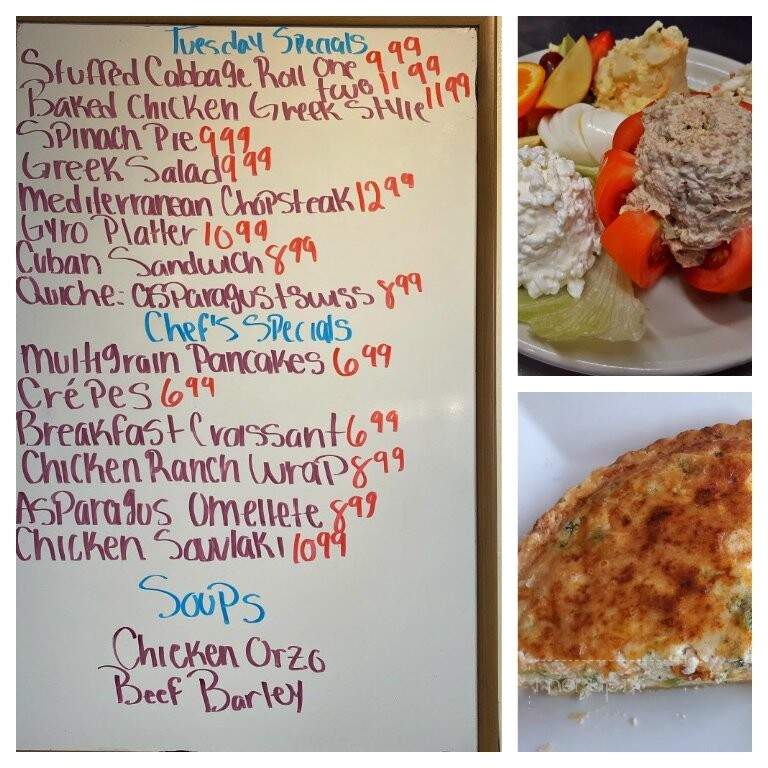 Tuesday Specials
Stuffed Cabbage Roll one 9 99
two 11 99
Baked Chicken Greek Style 11 99
Spinach Pie 9 99
Greek Salad 9 99
Mediterranean Chopsteak 12 99
Gyro Platter 10 99
Cuban Sandwich 8 99
Quiche: asparagus + swiss 8 99
Chef's Specials
Multigrain Pancakes 6 99
Crépes 6 99
Breakfast Croissant 6 99
Chicken Ranch Wrap 8 99
Asparagus Omellete 8 99
Chicken Sauvlaki 10 99
Soups
Chicken Orzo
Beef Barley